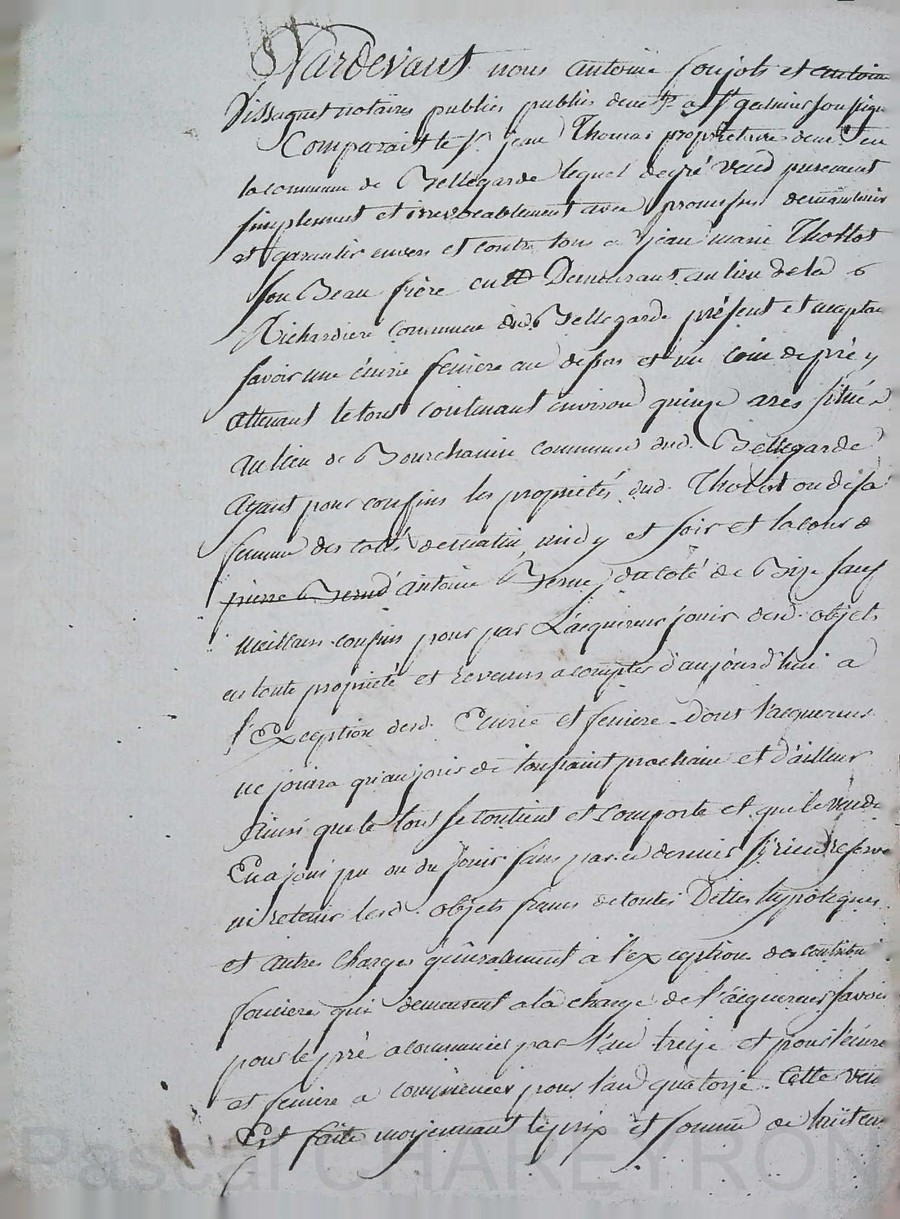 Pardevant nous antoine Soujols et antoine
Vissaguet notaires publics publics demt a St galmier soussign
Comparait le Sr jean Thomas propriétaire demt en
la commune de Bellegarde lequel de gré vend purement
simplement et irrevocablement avec promesse de maintenir
et garantir envers et contre tous a jean marie Thollot
son Beau frère Demeurant au lieu de la
Richardiere commune dud. Bellegarde présent et accepta
savoir une écurie feniere au dessus et un coin de pré y
attenant le tout contenant environ quinze ares situé
au lieu de commune dud. Bellegarde
ayant pour confins les propriétés dud. Thollot ou de sa
femme des cotés de matin, midy et soir et la cour d
pierre Berne antoine Berne, du coté de Bize sauf
meilleurs confins pour par L'acquereur jouir desd. objets
en toute propriété et revenus a compter d'aujourd'hui a
l'Exception desd. Ecurie et feniere dont l'acquereur
ne jouira qu'au jour de toussaint prochaine et d'ailleur
Ainsi que le tout se contient et comporte et que le vende
En a joui pu ou du jouir sans par ce dernier s'y rien réserve
ni retenir lesd. objets francs de toutes Dettes hypoteques
et autres Charges généralement à l'exception des contribu
foncieres qui demeurent a la charge de l'acquereur savoir
pour le pré a commencer par l'an treize et pour l'écurie
et feniere a commencer pour l'an quatorze. Cette ven
Est faite moyennant le prix et somme de huit cen
Pascal CHAREYRON